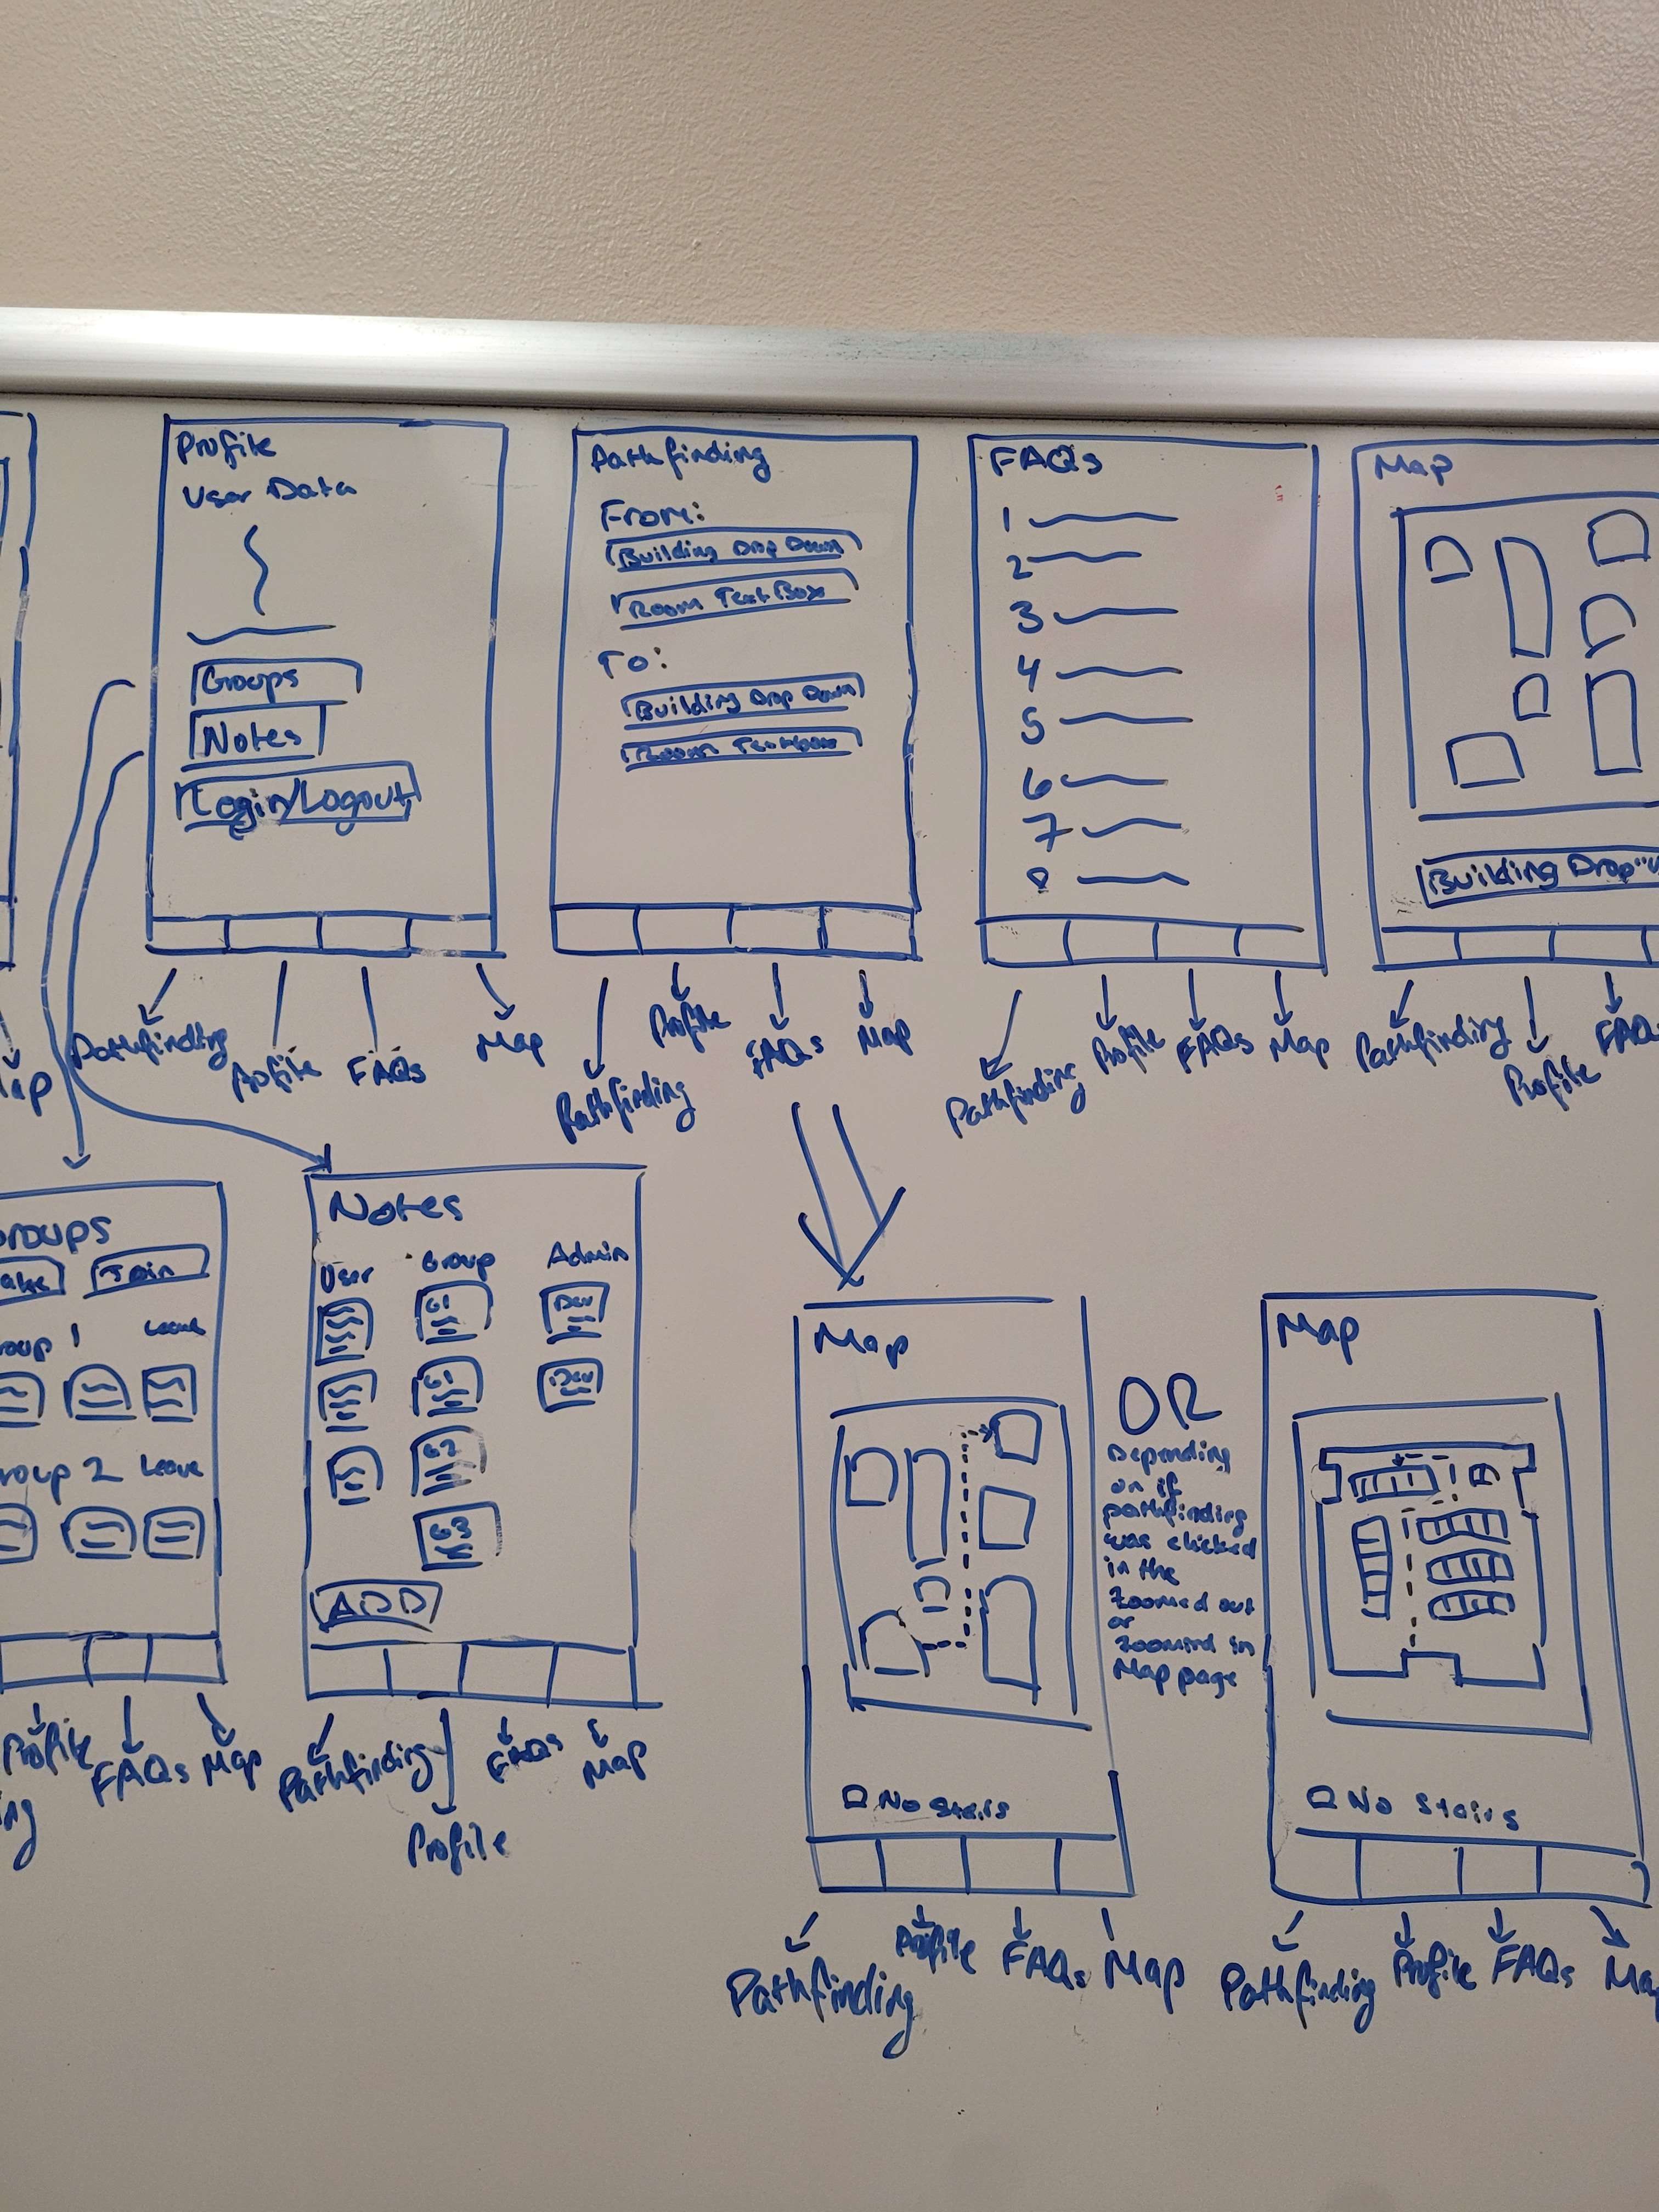 Profile
User Data
Groups
Notes
Login/Logout
Pathfinding
Profile
FAQs
Map
Pathfinding
From:
Building Drop Down
Room Text Box
To:
Building Drop Down
Room Textbox
Pathfinding
Profile
FAQs
Map
FAQs
1
2
3
4
5
6
7
8
Pathfinding
Profile
FAQs
Map
Map
Building Drop
Pathfinding
Profile
FAQs
ap
roups
ake
Join
roup 1
Leave
roup 2
Leave
ing
Profile
FAQs
Map
Notes
User
Group
Admin
G1
G1
G2
G3
ADD
Pathfinding
Profile
FAQs
Map
Map
No stairs
Pathfinding
Profile
FAQs
Map
OR
Depending
on if
pathfinding
was clicked
in the
zoomed out
or
zoomed in
Map page
Map
No stairs
Pathfinding
Profile
FAQs
Ma